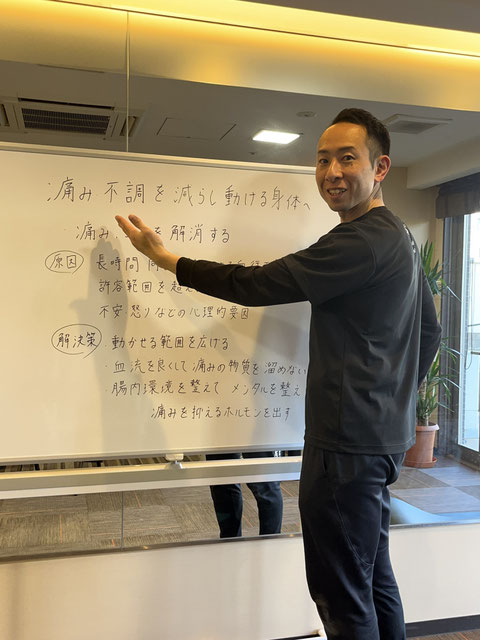 痛み 不調を減らし動ける身体へ
・痛み を解消する
原因 長時間 同
許容範囲を超え
不安 怒りなどの心理的要因
解決策 ・動かせる範囲を広げる
・血流を良くして痛みの物質を溜めない
・腸内環境を整えて メンタルを整え
痛みを抑えるホルモンを出す